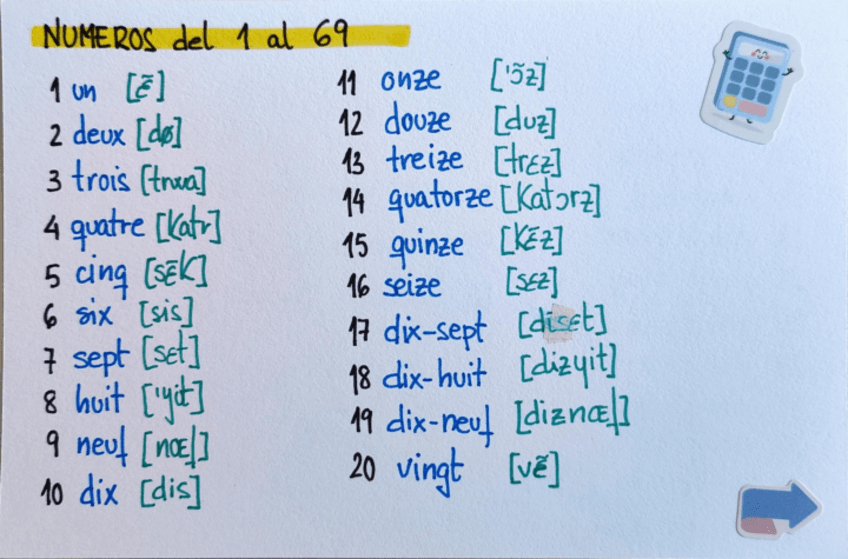 NUMEROS del 1 al 69
1 un [ɛ̃]
2 deux [dø]
3 trois [trwa]
4 quatre [Katr]
5 cinq [sɛ̃K]
6 six [sis]
7 sept [sɛt]
8 huit ['yit]
9 neuf [nœf]
10 dix [dis]
11 onze ['ɔ̃z]
12 douze [duz]
13 treize [trɛz]
14 quatorze [Katɔrz]
15 quinze [Kɛ̃z]
16 seize [sɛz]
17 dix-sept [disɛt]
18 dix-huit [dizyit]
19 dix-neuf [diznœf]
20 vingt [vɛ̃]